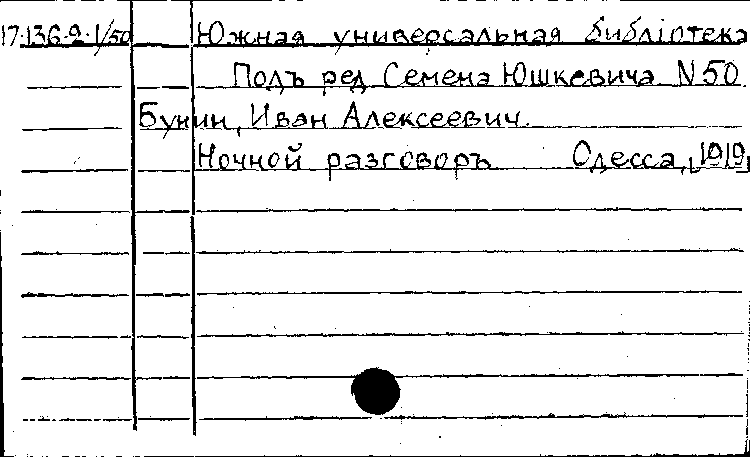 17.136.2.1/50 Южная универсальная библіотека
Подъ ред Семена Юшкевича N 50
Бунин, Иван Алексеевич.
Ночной разговоръ Одесса, [1919]